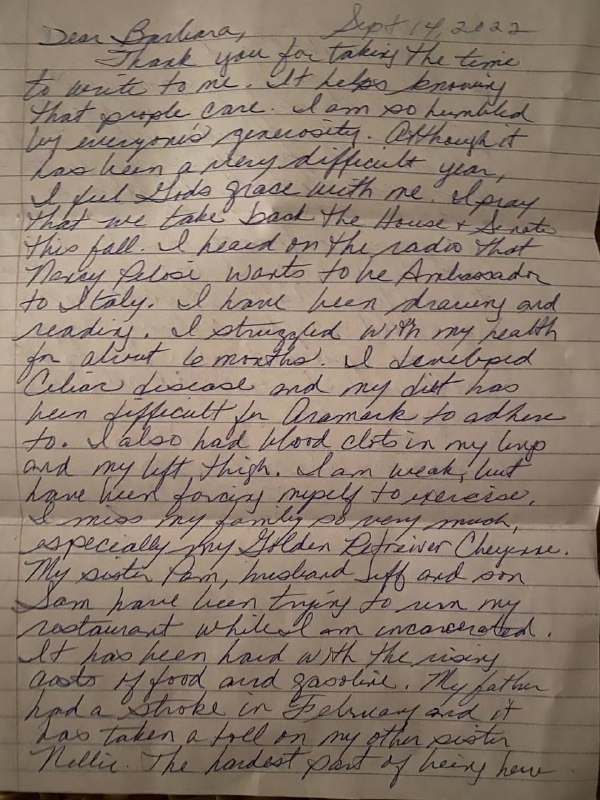 Dear Barbara, Sept 14, 2022
Thank you for taking the time
to write to me. It helps knowing
that people care. I am so humbled
by everyone's generosity. Although it
has been a very difficult year,
I feel Gods grace with me. I pray
that we take back the House + Senate
this fall. I heard on the radio that
Nancy Pelosi wants to be Ambassador
to Italy. I have been drawing and
reading. I struggled with my health
for about 6 months. I developed
Celiac disease and my diet has
been difficult for Aramark to adhere
to. I also had blood clots in my lungs
and my left thigh. I am weak, but
have been forcing myself to exercise.
I miss my family so very much,
especially my Golden Retreiver Cheyenne.
My sister Pam, husband Jeff and son
Sam have been trying to run my
restaurant while I am incarcerated.
It has been hard with the rising
costs of food and gasoline. My father
had a stroke in February and it
has taken a toll on my other sister
Nellie. The hardest part of being here